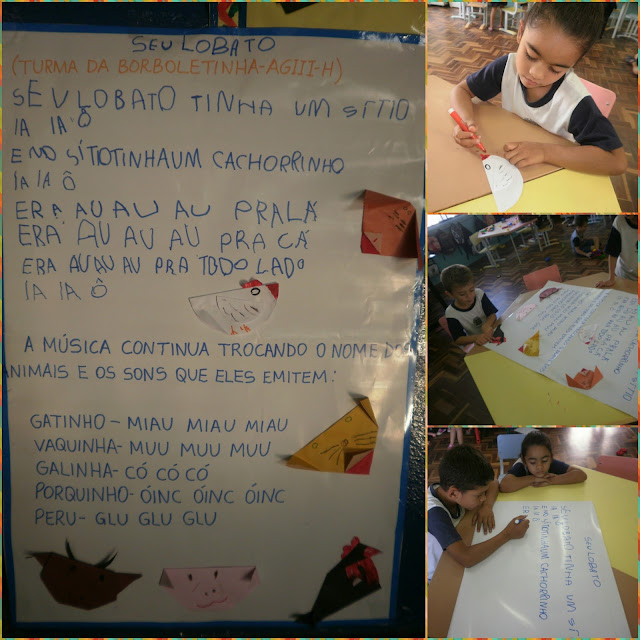 SEU LOBATO
(TURMA DA BORBOLETINHA-AGIII-H)
SEU LOBATO TINHA UM SÍTIO
IA IA Ô
E NO SÍTIO TINHA UM CACHORRINHO
IA IA Ô
ERA AU AU AU PRA LÁ
ERA AU AU AU PRA CÁ
ERA AU AU AU PRA TODO LADO
IA IA Ô
A MÚSICA CONTINUA TROCANDO O NOME DOS
ANIMAIS E OS SONS QUE ELES EMITEM:
GATINHO - MIAU MIAU MIAU
VAQUINHA- MUU MUU MUU
GALINHA- CÓ CÓ CÓ
PORQUINHO- ÓINC ÓINC ÓINC
PERU- GLU GLU GLU
SEU LOBATO
SEU LOBATO TINHA UM SÍ
IA IA Ô
E NO SÍTIO TINHA UM CACHORRINHO
IA IA Ô
ERA